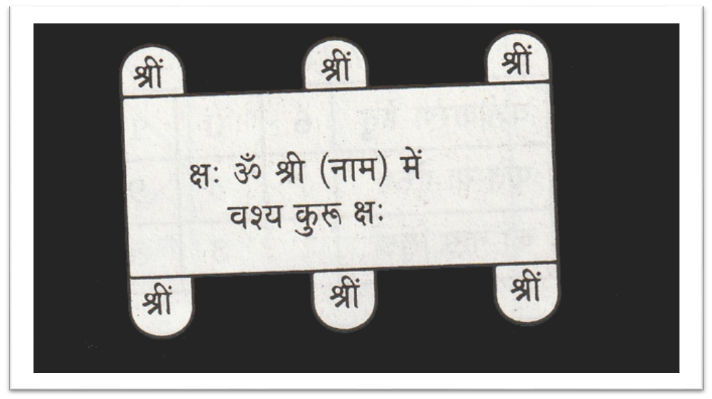 श्रीं श्रीं श्रीं
क्षः ॐ श्री (नाम) में
वश्य कुरू क्षः
श्रीं श्रीं श्रीं